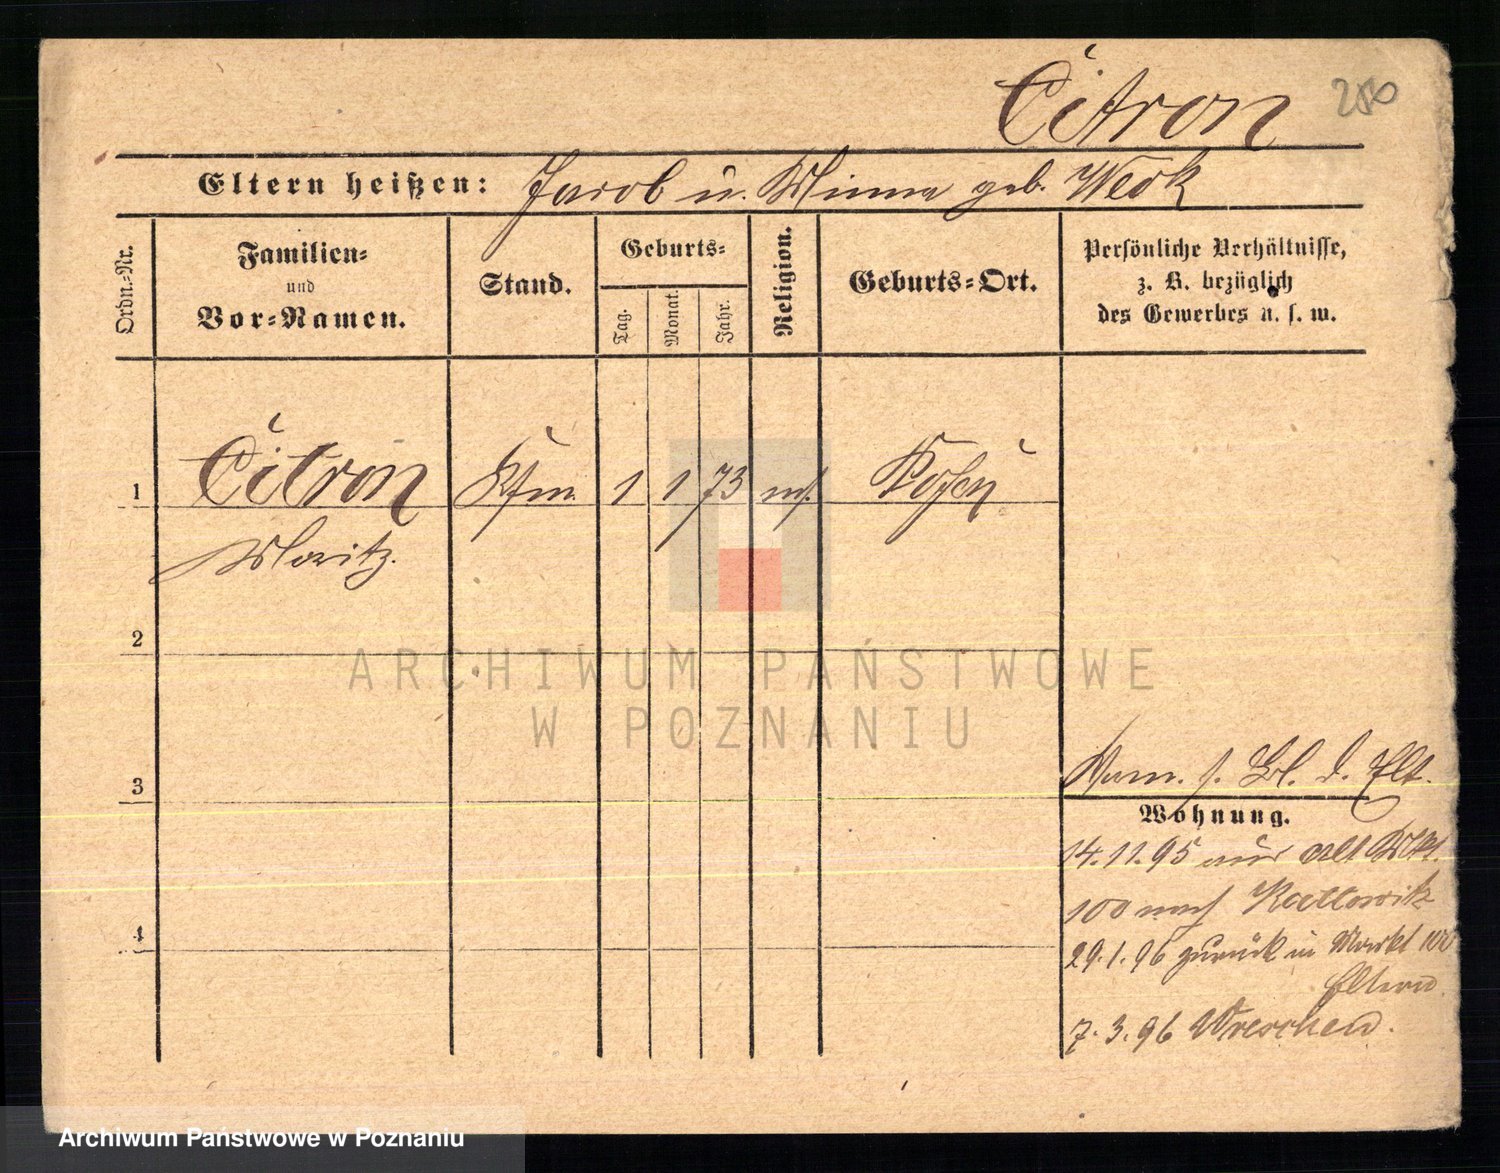 Citron
250
Eltern heißen: Jacob u. Minna geb. Werk
Ordn.-Nr.
Familien-
und
Vor-Namen.
Stand.
Geburts-
Tag.
Monat.
Jahr.
Religion.
Geburts-Ort.
Persönliche Verhältnisse,
z. B. bezüglich
des Gewerbes u. s. w.
1 Citron Kfm 1 1 73 mos. Posen
Moritz.
2
3
4
s. Bl. d. Elt.
Wohnung.
14.11.95 aus alt Mkt.
100 nach Kattowitz
29.1.96 zurück in Markt 100
Eltern
7.3.96 Wreschen.
ARCHIWUM PAŃSTWOWE
W POZNANIU
Archiwum Państwowe w Poznaniu